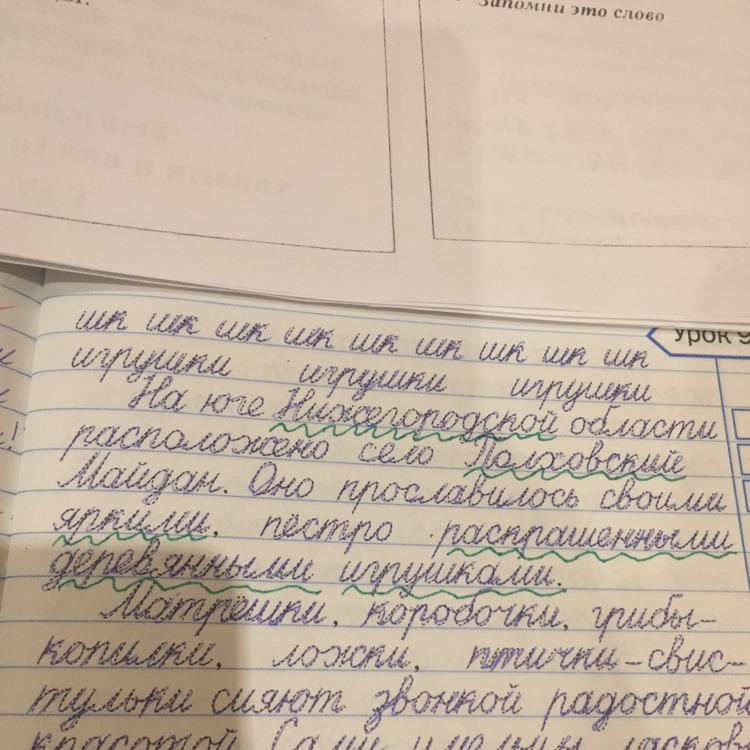 Запомни это слово
шк шк шк шк шк шк шк шк шк
Урок 9
игрушки игрушки игрушки
На юге Нижегородской области
расположено село Полховский
Майдан. Оно прославилось своими
яркими, пёстро раскрашенными
деревянными игрушками.
Матрёшки, коробочки, грибы-
копилки, ложки, птички-свис-
тульки сияют звонкой радостной
красотой. Сами